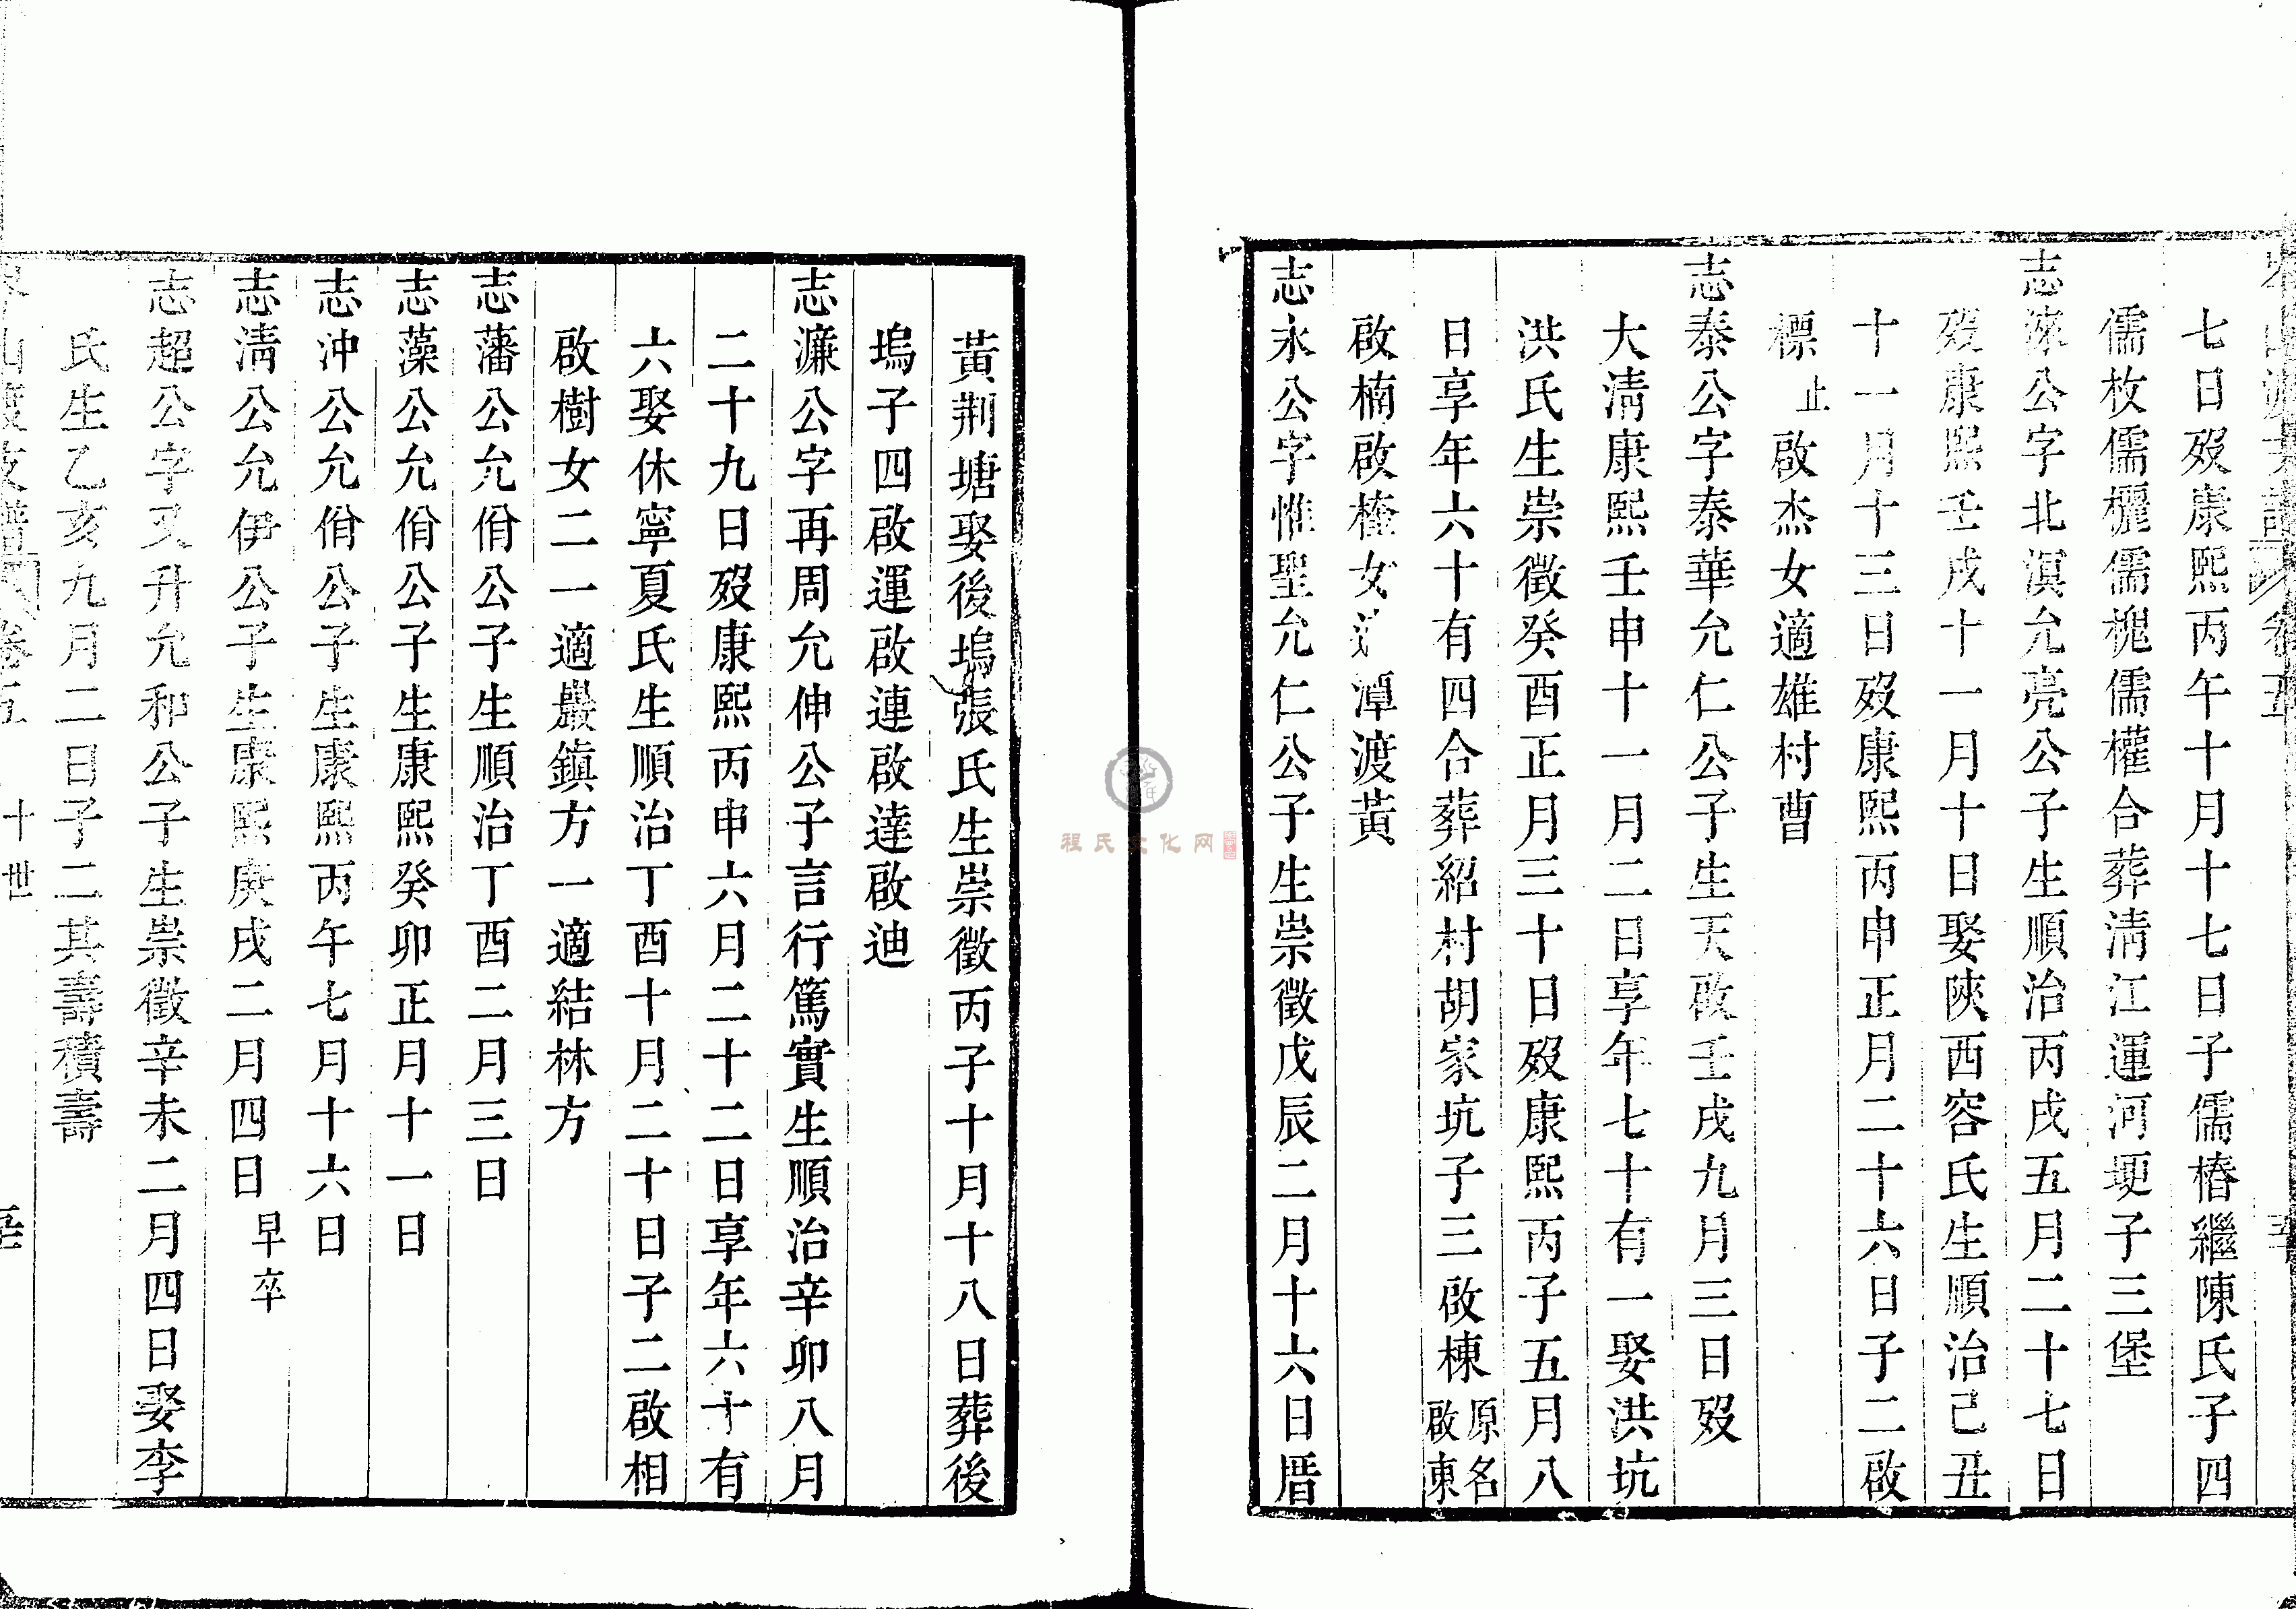 七日歿康熙丙午十月十七日子儒椿繼陳氏子四
儒枚儒欐儒槐儒權合葬清江運河埂子三堡
志 公字北溟允亮公子生順治丙戌五月二十七日
歿康熙壬戌十一月十日娶陝西容氏生順治己丑
十一月十三日歿康熙丙申正月二十六日子二啟
標止啟杰女適雄村曹
志泰公字泰華允仁公子生天啟壬戌九月三日歿
大清康熙壬申十一月二日享年七十有一娶洪坑
洪氏生崇徵癸酉正月三十日歿康熙丙子五月八
日享年六十有四合葬紹村胡家坑子三啟棟原名啟東
啟楠啟權女 潭渡黃
志永公字惟聖允仁公子生崇徵戊辰二月十六日厝
黃荆塘娶後塢張氏生崇徵丙子十月十八日葬後
塢子四啟運啟連啟達啟迪
志濂公字再周允伸公子言行篤實生順治辛卯八月
二十九日歿康熙丙申六月二十二日享年六十有
六娶休寧夏氏生順治丁酉十月二十日子二啟相
啟樹女二一適巖鎮方一適結林方
志藩公允佾公子生順治丁酉二月三日
志藻公允佾公子生康熙癸卯正月十一日
志沖公允佾公子生康熙丙午七月十六日
志清公允伊公子生康熙庚戌二月四日早卒
志超公字又升允和公子生崇徵辛未二月四日娶李
氏生乙亥九月二日子二其壽積壽
卷五 十世
程氏文化网